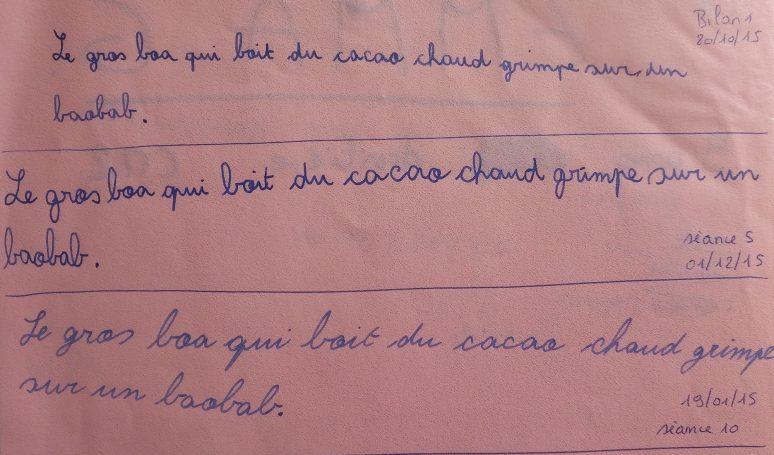 Bilan 1
20/10/15
Le gros boa qui boit du cacao chaud grimpe sur un
baobab.
Le gros boa qui boit du cacao chaud grimpe sur un
baobab.
séance 5
01/12/15
Le gros boa qui boit du cacao chaud grimpe
sur un baobab.
19/01/15
séance 10